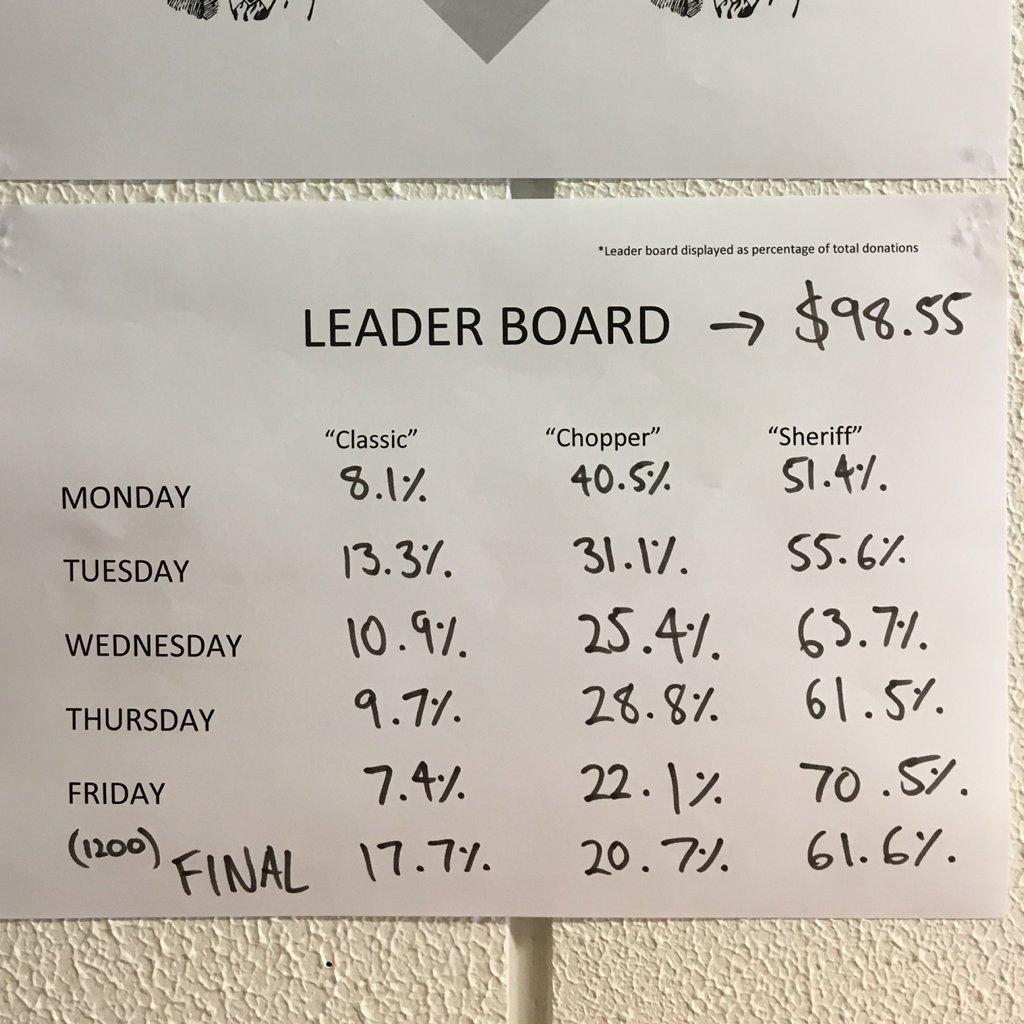 *Leader board displayed as percentage of total donations
LEADER BOARD → $98.55
"Classic" "Chopper" "Sheriff"
MONDAY 8.1% 40.5% 51.4%
TUESDAY 13.3% 31.1% 55.6%
WEDNESDAY 10.9% 25.4% 63.7%
THURSDAY 9.7% 28.8% 61.5%
FRIDAY 7.4% 22.1% 70.5%
(1200) FINAL 17.7% 20.7% 61.6%